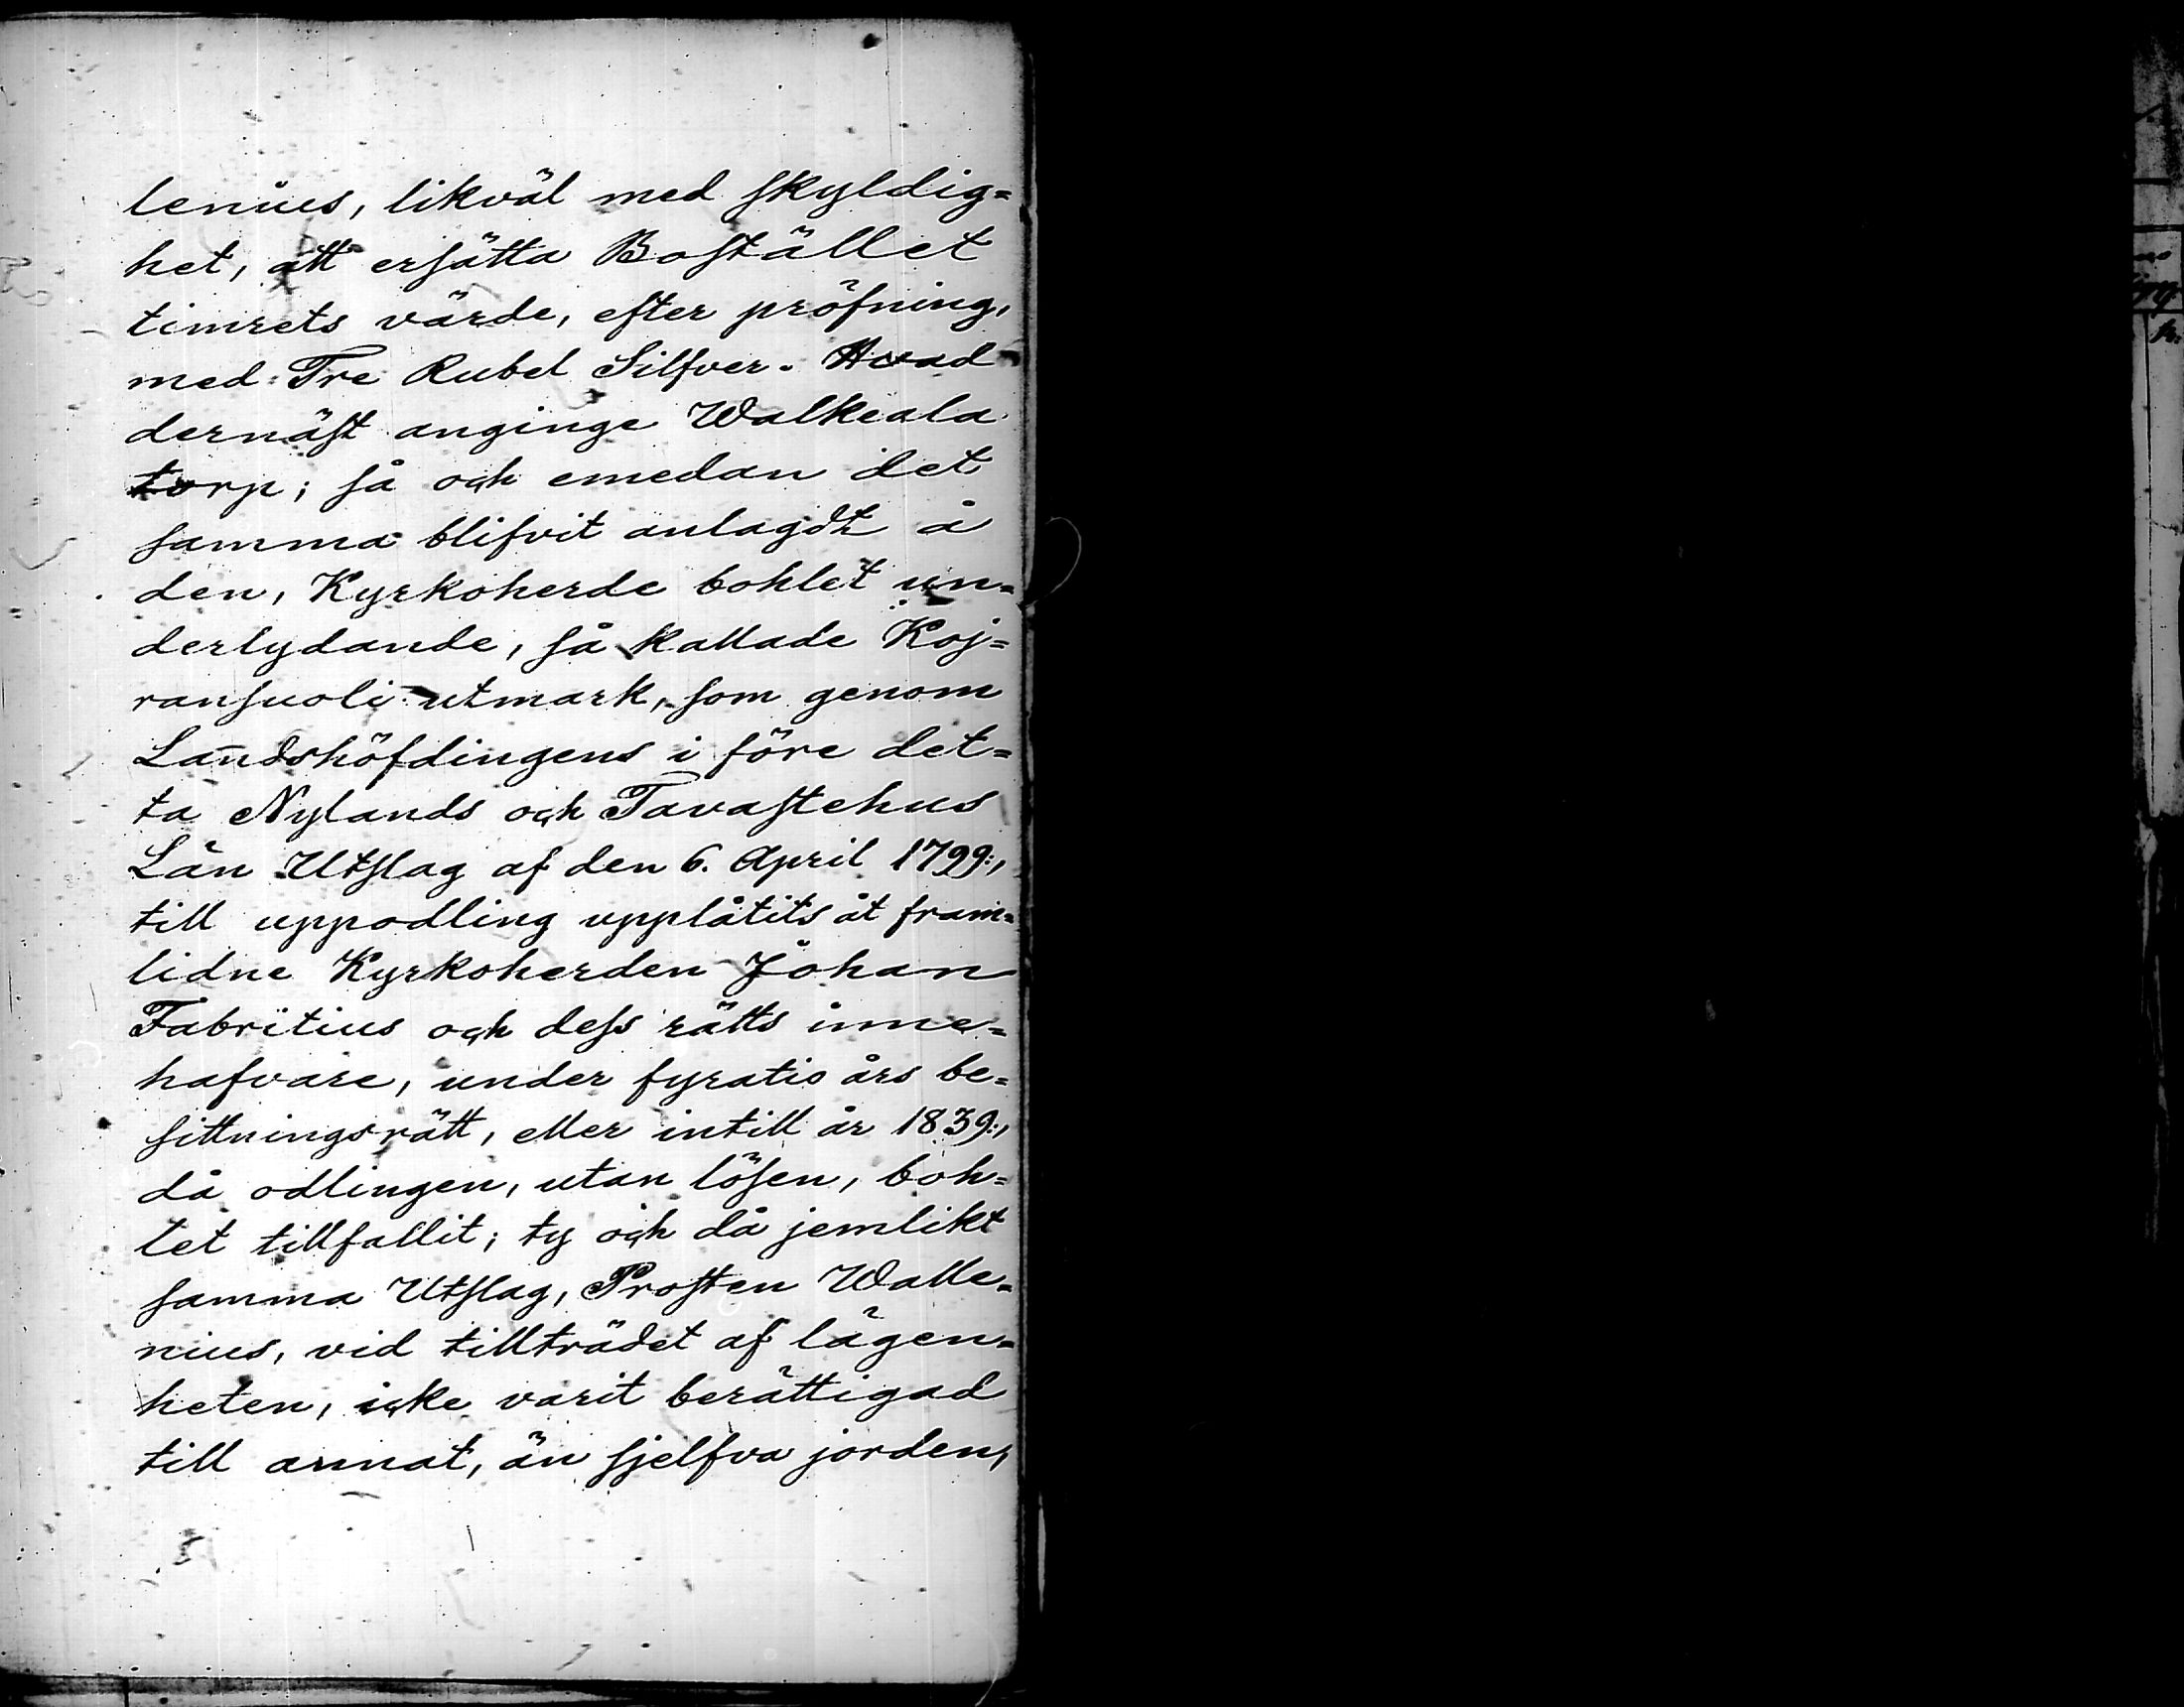 lenius, likväl med skyldig=
het, att ersätta Bostället
timrets värde, efter pröfning,
med Tre Rubel Silfver. Hvad
dernäst anginge Walkeala
torp; så och emedan det
samma blifvit anlagdt å
den, Kyrkoherde bohlet un=
derlydande, så kallade Koj=
ransuoli utmark, som genom
Landshöfdingens i före det=
ta Nylands och Tavastehus
Län Utslag af den 6. April 1799:,
till uppodling upplåtits åt fram=
lidne Kyrkoherden Johan
Fabritius och dess rätts inne=
hafvare, under fyratio års be=
sittningsrätt, eller intill år 1839:,
då odlingen, utan lösen, boh=
let tillfallit; ty och då jemlikt
samma Utslag, Prosten Walle=
nius, vid tillträdet af lägen=
heten, icke varit berättigad
till annat, än sjelfva jorden,